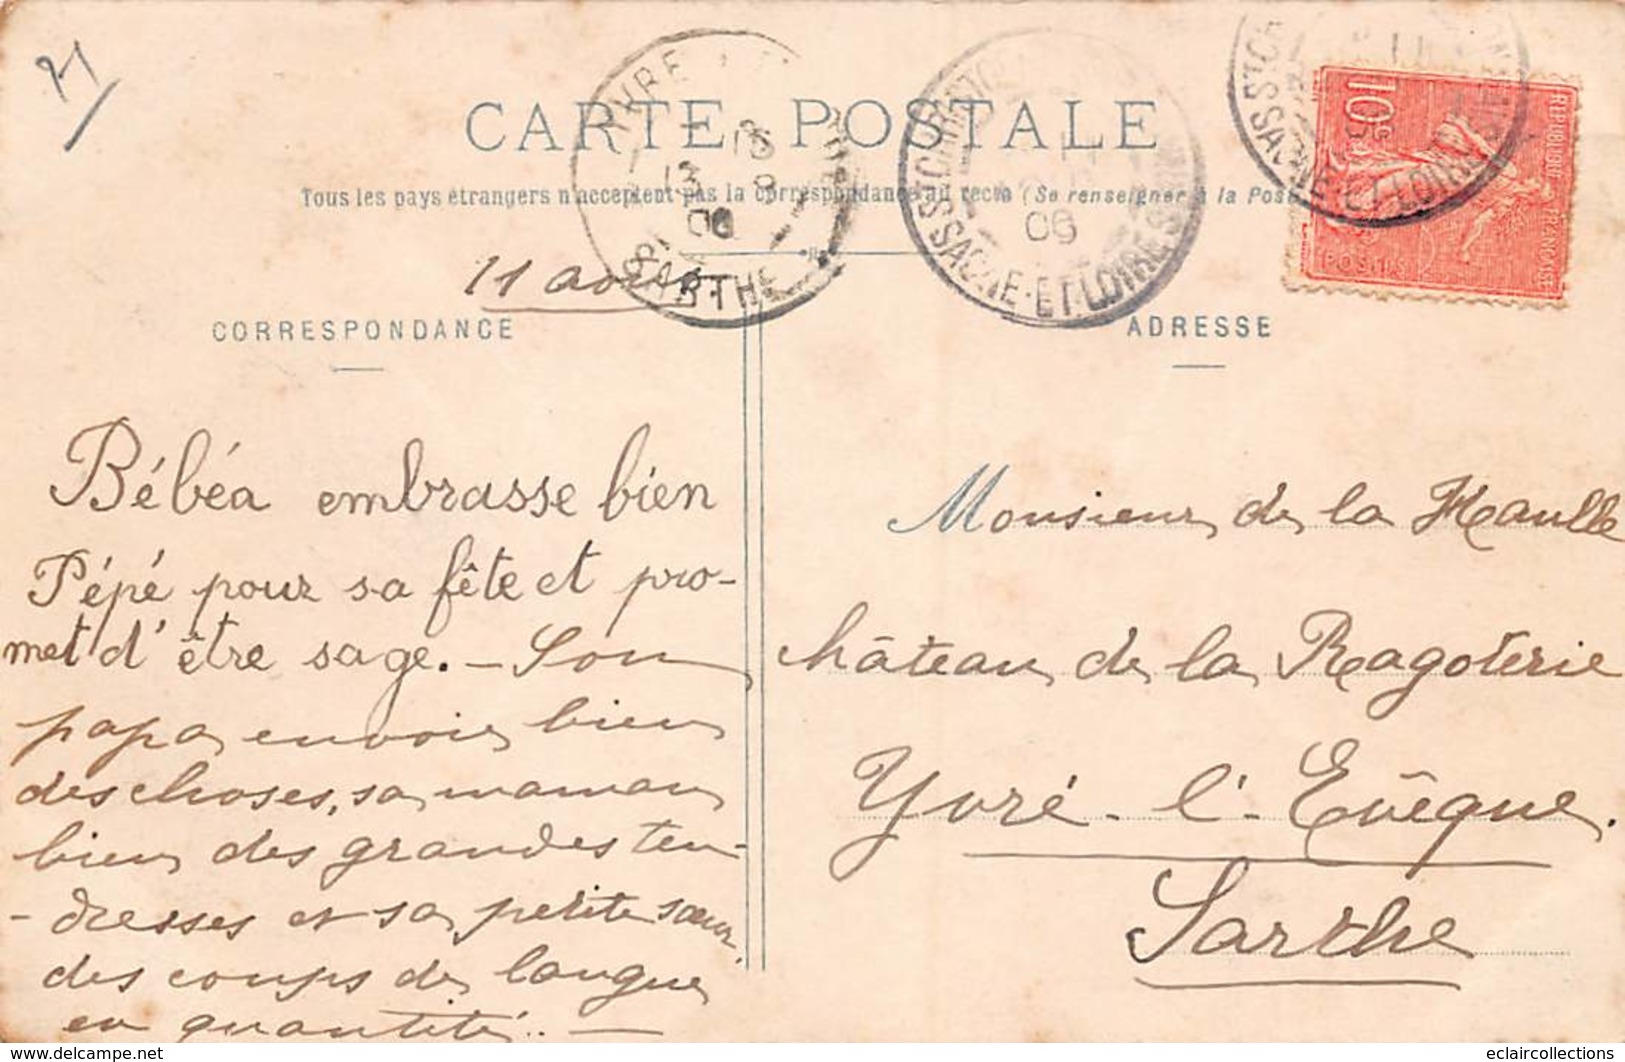 21
CARTE POSTALE
Tous les pays étrangers n'acceptent pas la correspondance au recto (Se renseigner à la Poste
11 août
CORRESPONDANCE
ADRESSE
Bébéa embrasse bien
Pépé pour sa fête et pro-
met d'être sage. — Son
papa envoie bien
des choses, sa maman
bien des grandes ten-
- dresses et sa petite sœur
des coups de langue
en quantité.. —
Monsieur de la Haulle
château de la Ragoterie
Yvré-l'-Evêque.
Sarthe
YVRE
SARTHE
13 8
06
ST CHRISTOPHE
SAONE-ET-LOIRE
06
ST CH
SAONE-ET-LOIRE
10c
REPUBLIQUE FRANÇAISE
POSTES
www.delcampe.net
eclaircollections